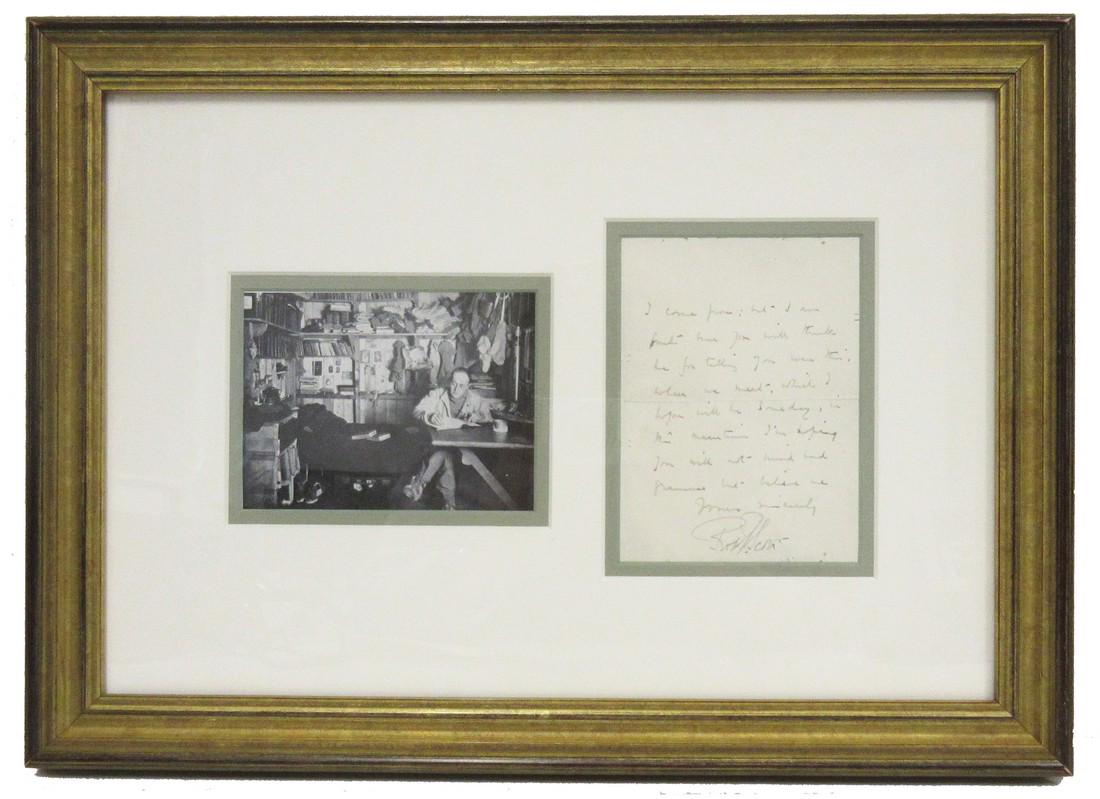 I come from; but I am
sure you will think
me for telling you was this.
when we meet, which I
hope will be someday, in
the meantime I'm hoping
you will not mind bad
grammar but believe me
Yours sincerely
R Scott